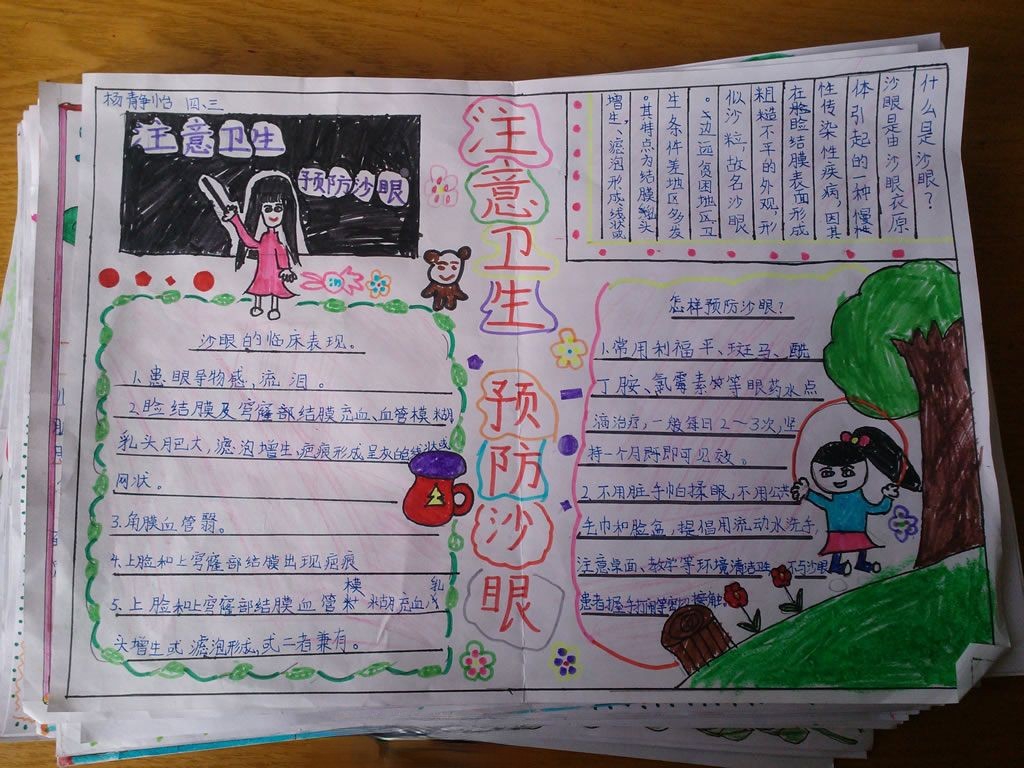 杨静怡 四、三
注意卫生
预防沙眼
注意卫生 预防沙眼
什么是沙眼?
沙眼是由沙眼衣原
体引起的一种慢
性传染性疾病,因其
在脸睑结膜表面形成
粗糙不平的外观,形
似沙粒,故名沙眼
。边远贫困地区、卫
生条件差地区多发
。其特点为结膜乳头
增生、滤泡形成、线状或
沙眼的临床表现。
1.患眼异物感,流泪。
2.睑结膜及穹窿部结膜充血、血管模糊
乳头肥大,滤泡增生、疤痕形成呈灰白线状或
网状。
3.角膜血管翳。
4.上睑和上穹窿部结膜出现疤痕
5.上睑和上穹窿部结膜血管模糊充血,乳
头增生或滤泡形成,或二者兼有。
怎样预防沙眼?
1.常用利福平、斑马、酰
丁胺、氯霉素等眼药水点
滴治疗,一般每日2~3次,坚
持一个月即可见效。
2.不用脏手帕揉眼,不用公共
毛巾和脸盆,提倡用流动水洗手,
注意桌面、教学等环境清洁 不与沙眼
患者握手 接触。